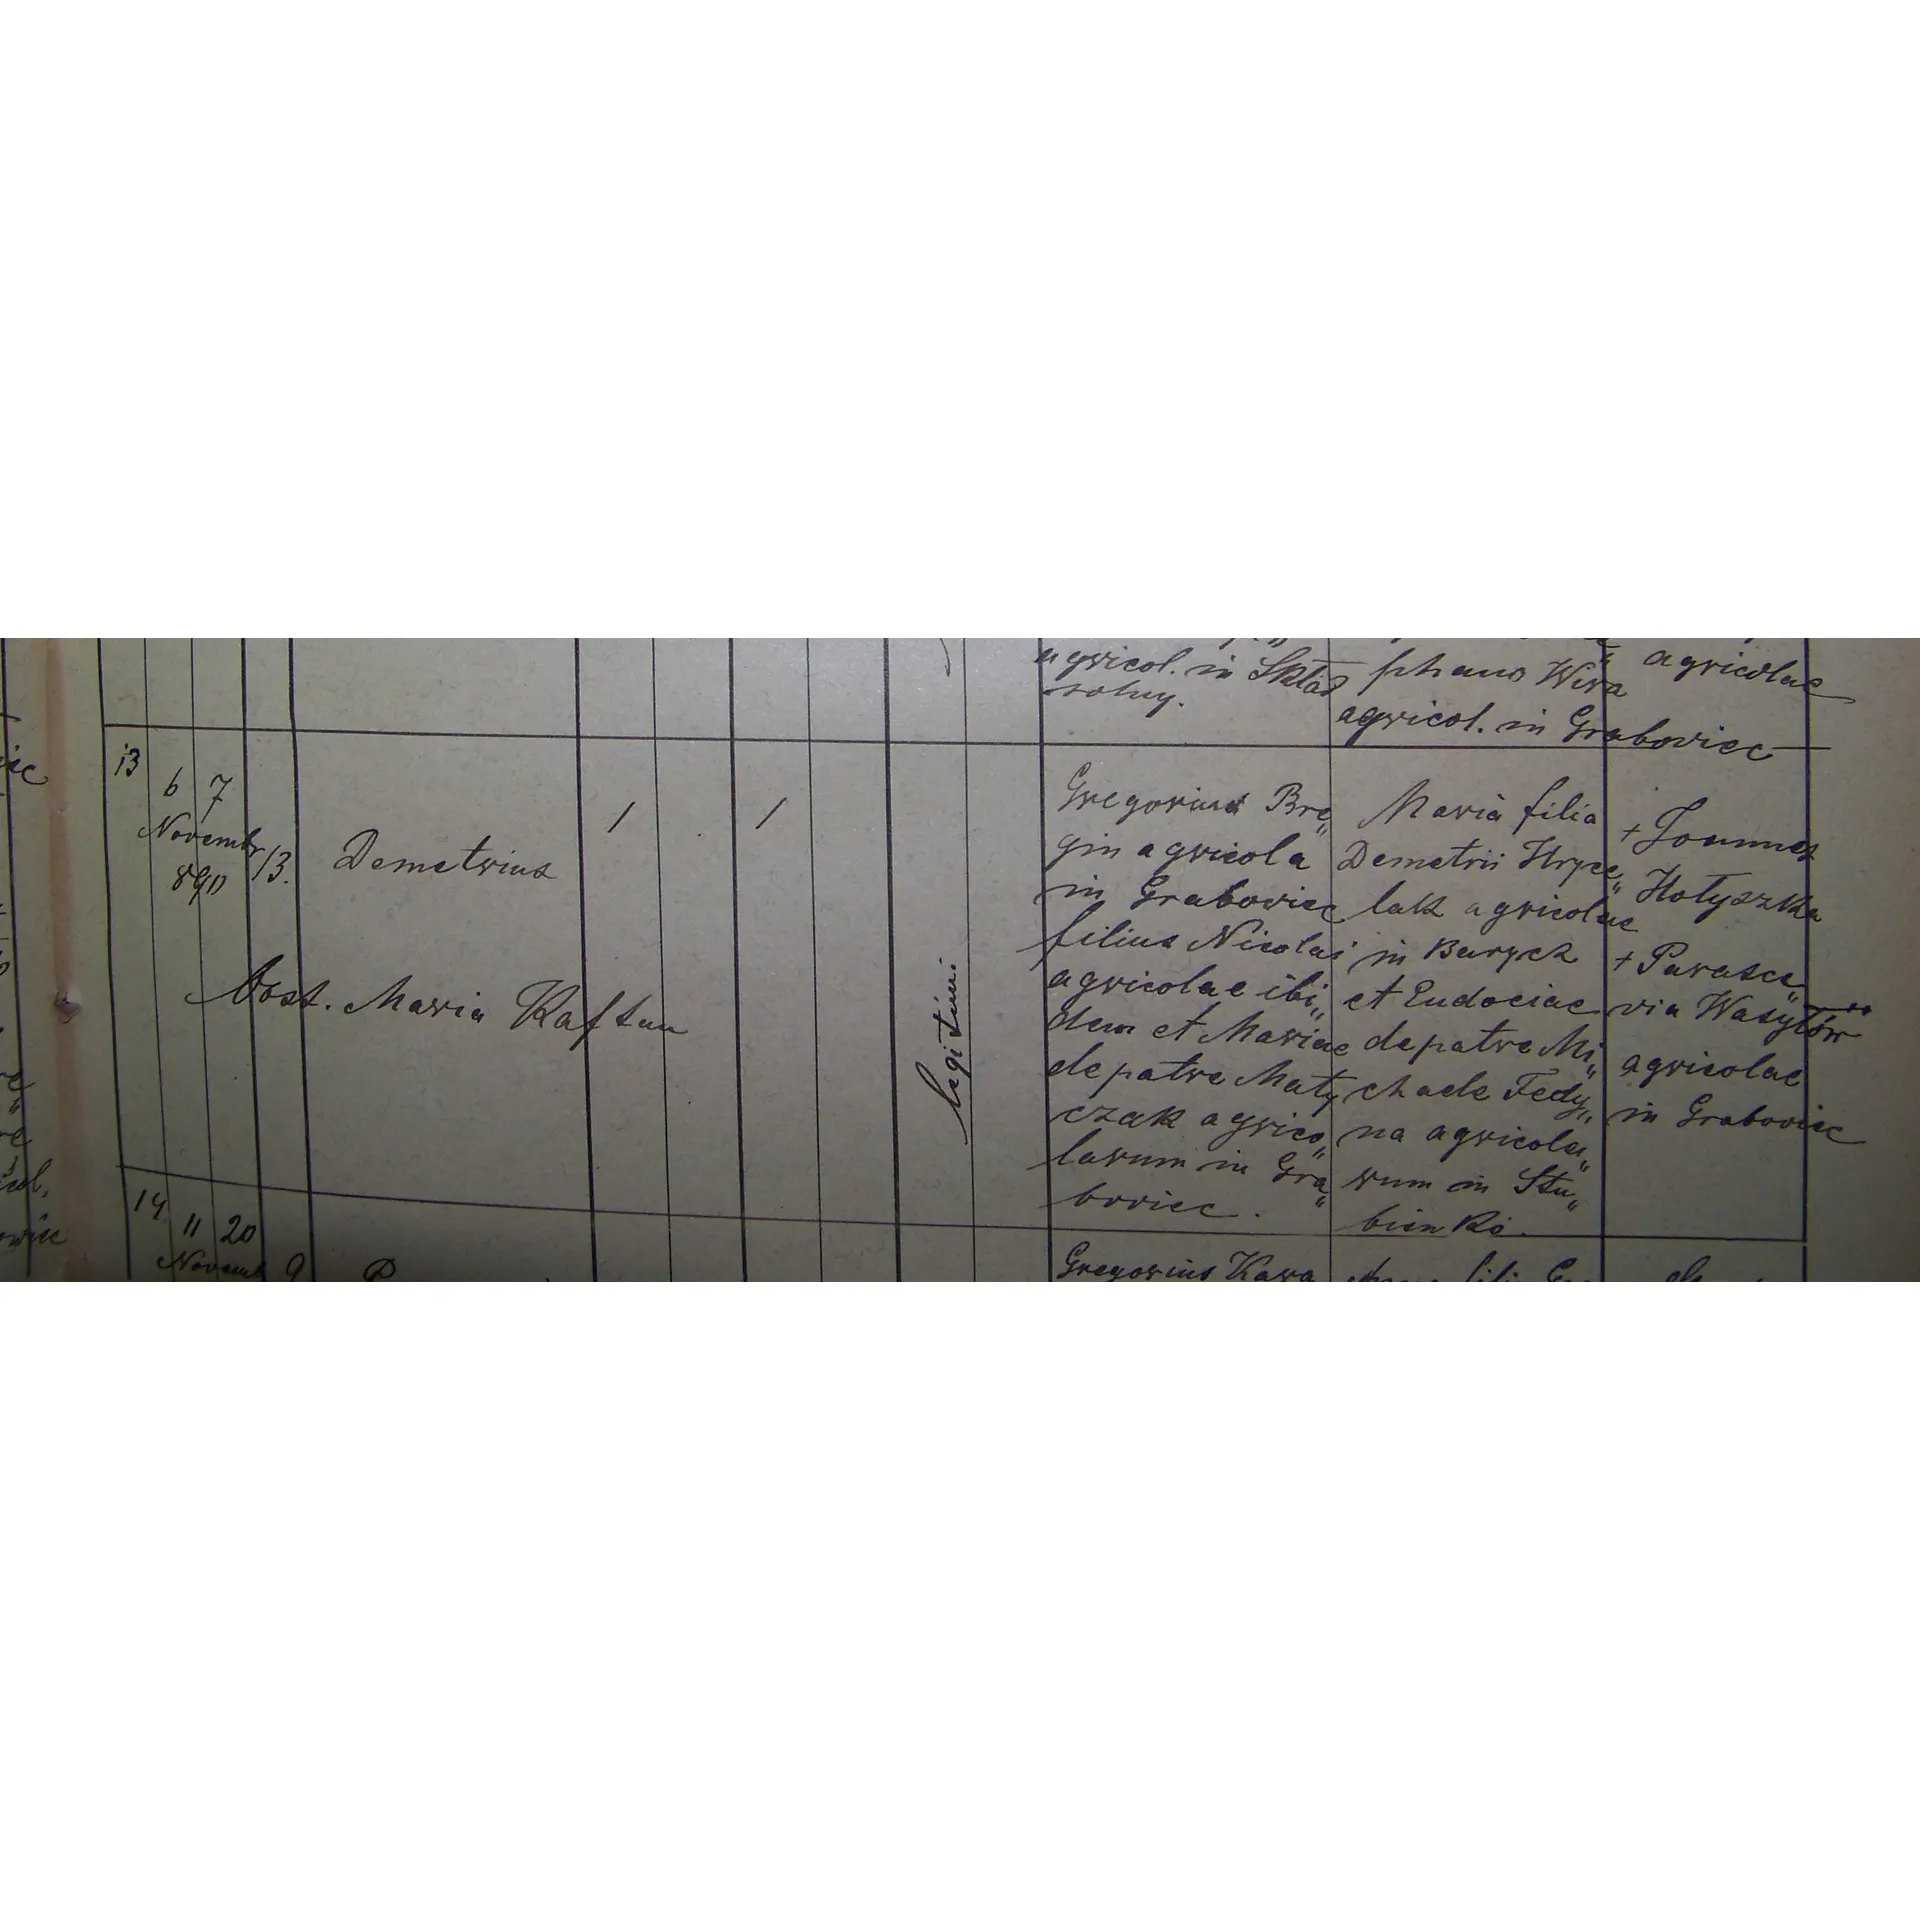 agricol. in Skład
solny.
phano Wira
agricol. in Grabowiec
agricolae
13
6 7
Novembr
890
13.
Demetrius
1
1
Obst. Maria Kaftan
legitimi
Gregorius Bre„
gin agricola
in Grabowiec
filius Nicolai
agricolae ibi„
dem et Mariae
de patre Maty
czak agrico„
larum in Gra„
bowiec.
Maria filia
Demetrii Hryce„
lak agricolae
in Barycz
et Eudociae
de patre Mi„
chaele Fedy„
na agricola„
rum in Stu„
bienko.
+ Joannes
Hołyszka
+ Parasce„
via Wasylów
agricolae
in Grabowiec
14
11 20
Novemb
9
Gregorius Kawa